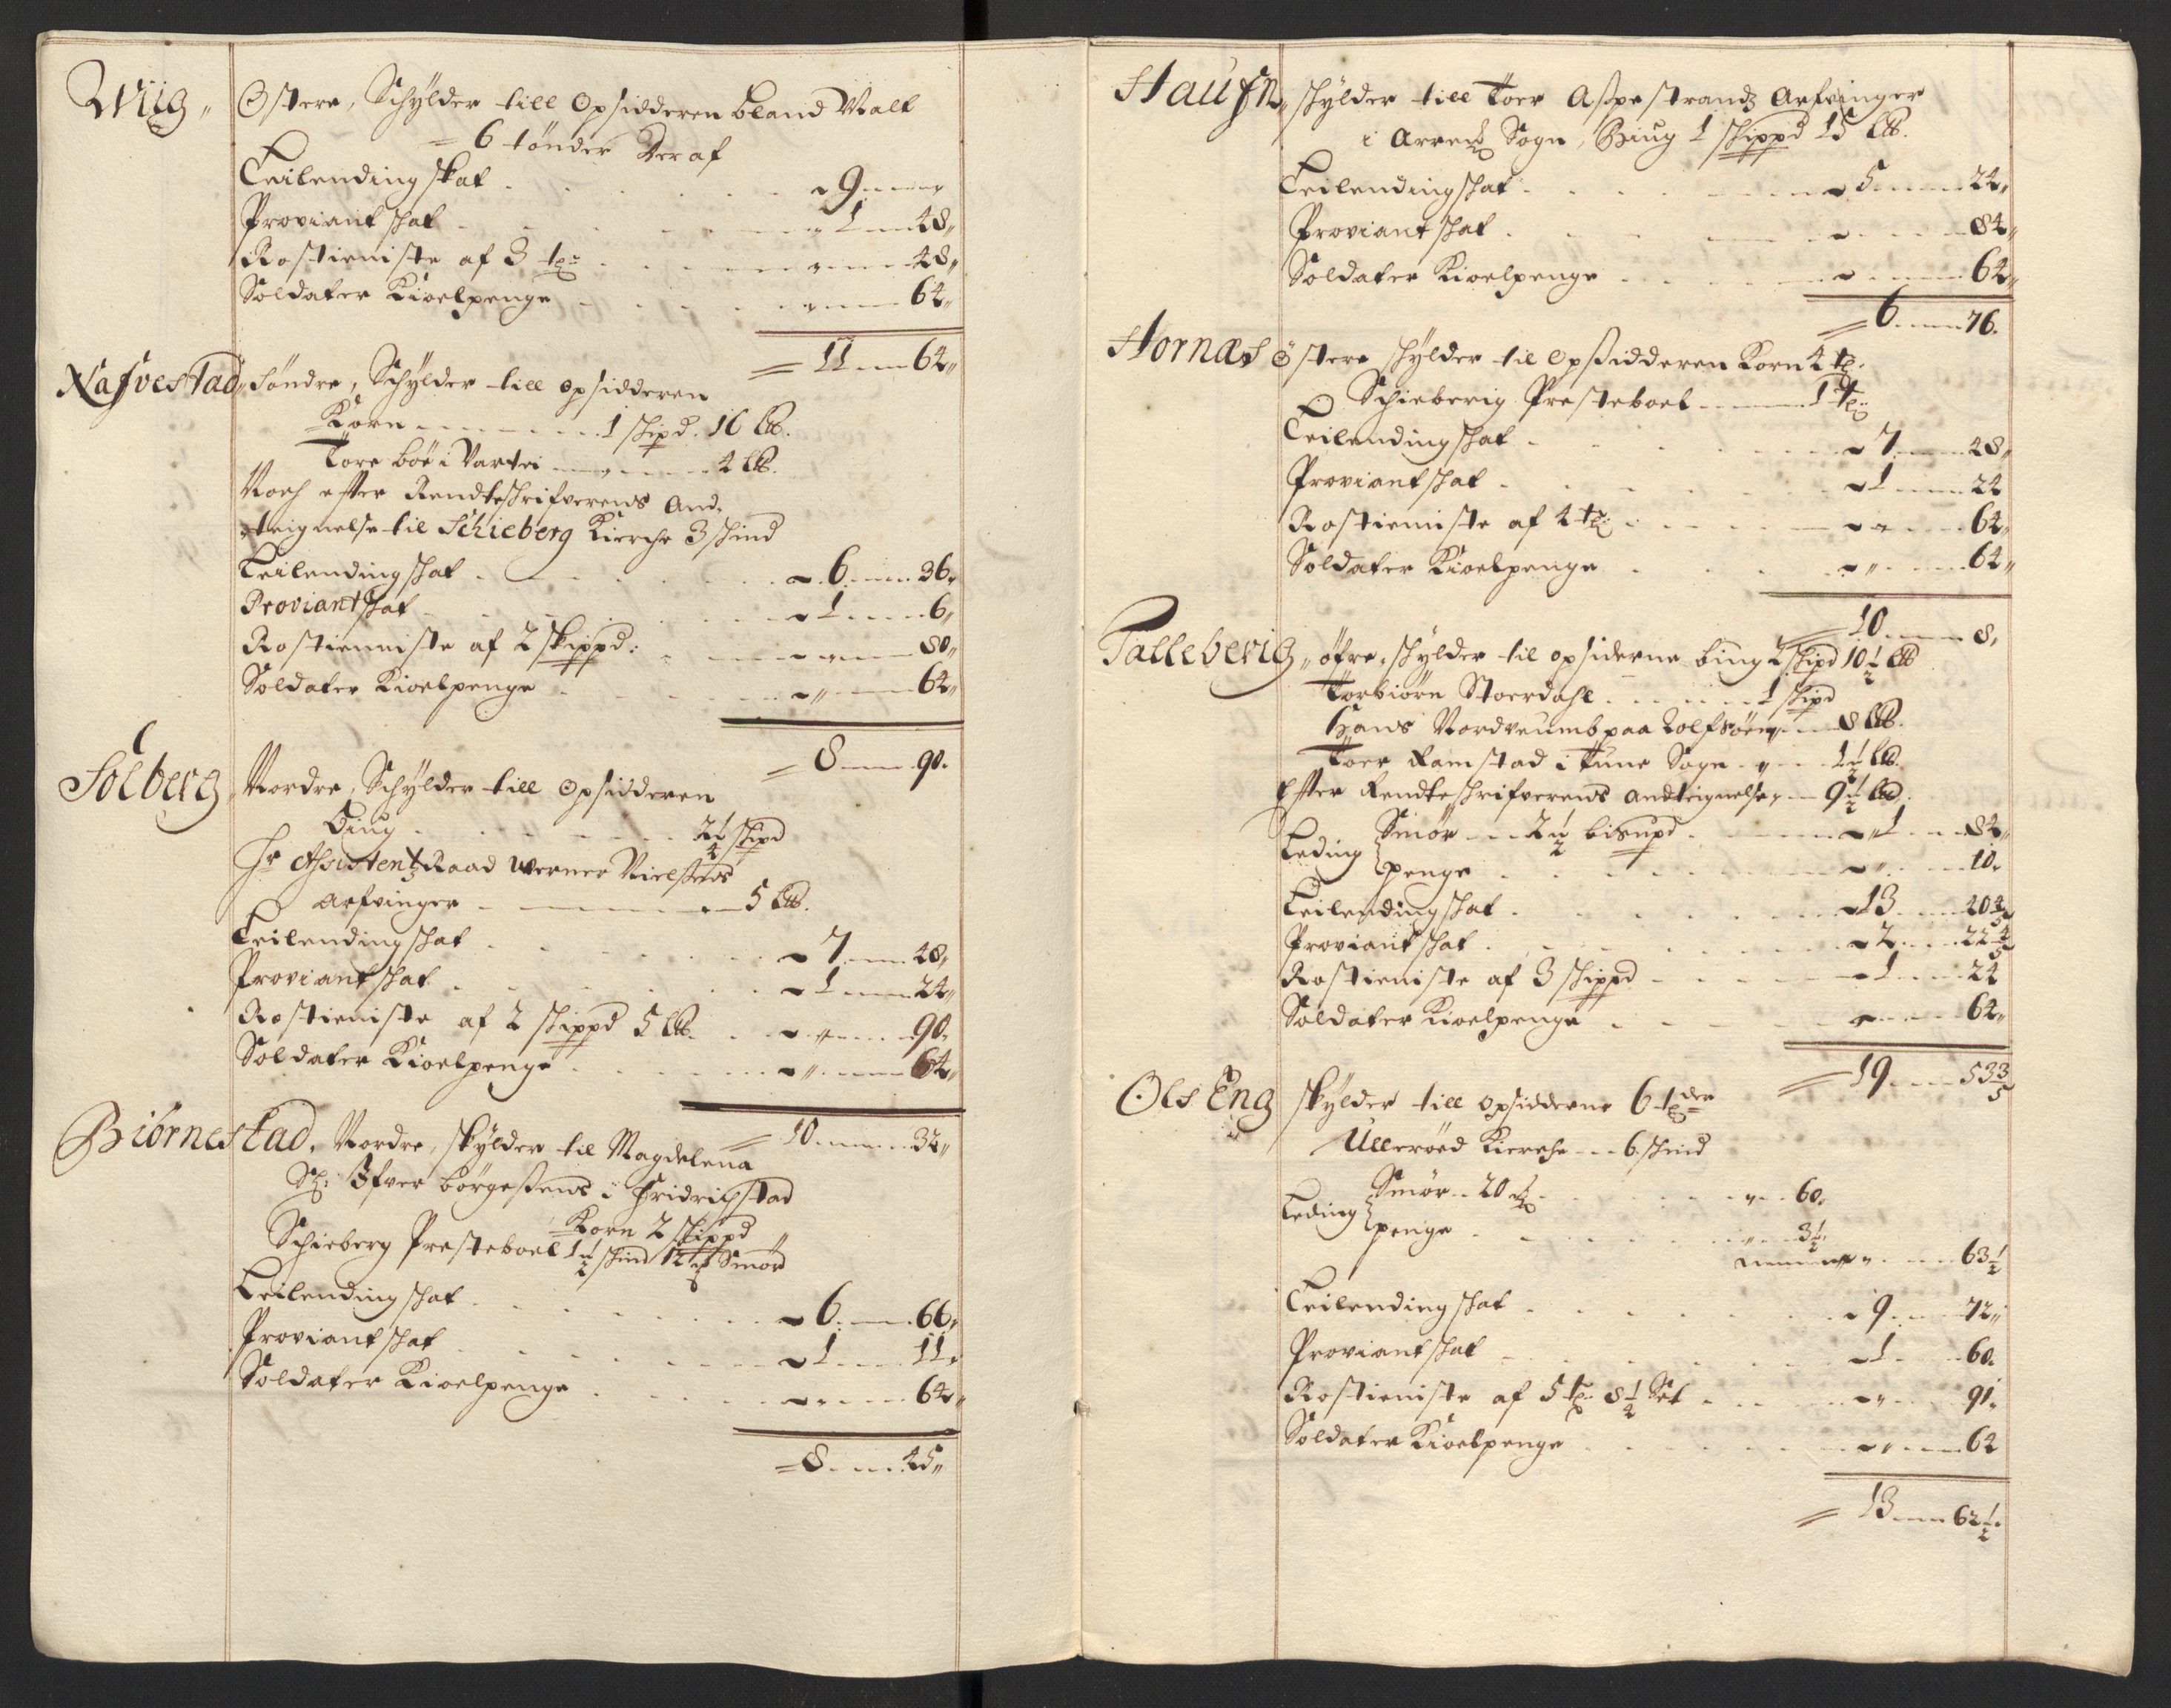 Wiig, Østere, Schÿlder till Opsidderen bland Malt
= 6 tønder Deraf
Leilending skat ~ 9
Proviant skat 1 48,,
Rostieniste af 3 tr: 48,,
Soldater Kioelpenge 64,,
= 11 64,,
Nafvestad,, Søndre, Schÿlder till opsidderen
Korn 1 skipd. 16 lb.
Tore böe i Varteï 4 lb.
Noch efter Rendteskrifverens And-
teignelse til Schieberg Kierche 3 skind
Leilending skat ~ 6 36,
Proviant skat ~ 1 6,,
Rostienniste af 2 skippd: 80,,
Soldater Kioelpenge ~ ,, 64,,
= 8 90.
Solberg, Nordre, Schÿlder till Opsidderen
Biug 2 1/4 skipd
Hr Assistentz Raad Werner Nielsens
Arfvinger 5 lb.
Leilending skat ~ 7 48,
Proviant skat ~ 1 24,,
Rostieniste af 2 skippd 5 lb. ~ ,, 90.
Soldater Kioelpenge ~ ,, 64,,
= 10 32,,
Biørnestad, Nordre, skÿlder til Magdelena
Sl: Ifver börgesens i Fridrichstad
Korn 2 skippd
Schieberg Presteboel 1 1/2 skind 12 Smör
Leilending skat ~ 6 66,
Proviant skat ~ 1 11,
Soldater Kioelpenge 64,,
= 8 45,,
Haufn,, skÿlder till Toer Aspestrandz Arfvinger
i Arrem Sogn, Biug 1 skippd 15 lb.
Leilending skat ~ 5 24,
Proviant skat ~ 84,,
Soldater Kioelpenge ~ 64,,
= 6 76.
Hornæs Østere skÿlder til Opsidderen Korn 4 tr.
Schieberig Presteboel 1 tr
Leilending skat ~ 7 48,
Proviant skat ~ 1 24
Rostieniste af 4 tr: 64,
Soldater Kioelpenge ~ ,, 64,,
= 10 8,
Talleberig,, öfre, skÿlder til opsiderne biug 2 skipd 10 1/2 lb
Torbiörn Stoerdahl 1 skipd
Hans Nordrumb paa Rolfsöen 8 lb.
Toer Ramstad i Tune Sogn 1 1/2 lb.
Efter Rendteskrifverens andteignelse 9 1/2 lb.
Leding Smör 2 1/2 bismpd. ~ 1 84,,
penge ~ ,, 10.
Leilending skat ~ 13 20 4/5
Proviant skat ~ 2 22 4/5
Rostieniste af 3 skippd ~ 1 24
Soldater Kioelpenge 64,
= 19 53 3/5
Ols Eng skÿlder till opsidderne 6 tr der
Ullerøed Kierche 6 skind
Leding Smör 20 ,, 60,
penge 3 1/2,
63 1/2
Leilending skat ~ 9 72,,
Proviant skat ~ 1 60.
Rostieniste af 5 tr: 8 1/2 Set ~ ,, 91,
Soldater Kioelpenge ~ ,, 64
= 13 62 1/2.